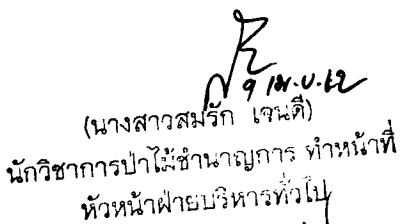 9 เม.ย.62
(นางสาวสมรัก เจนดี)
นักวิชาการป่าไม้ชำนาญการ ทำหน้าที่
หัวหน้าฝ่ายบริหารทั่วไป